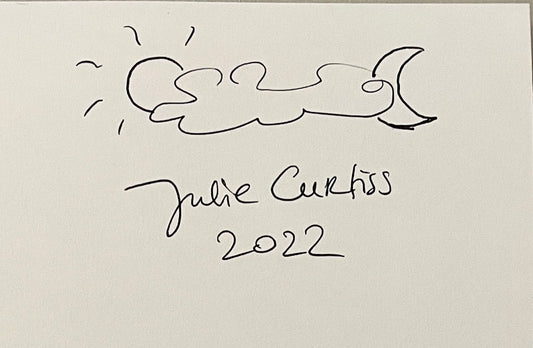 Julie Curtiss
2022